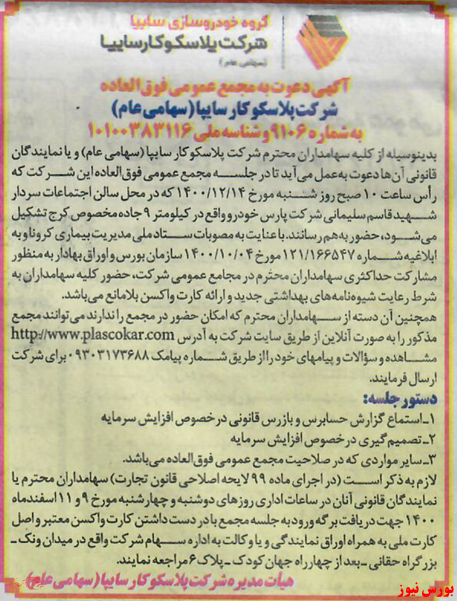 گروه خودروسازی سایپا
شرکت پلاسکوکار سایپا
(سهامی عام)
آگهی دعوت به مجمع عمومی فوق العاده
شرکت پلاسکو کار سایپا (سهامی عام)
به شماره ۹۱۰۶ و شناسه ملی ۱۰۱۰۰۳۸۳۱۱۶
بدینوسیله از کلیه سهامداران محترم شرکت پلاسکوکار سایپا (سهامی عام) و یا نمایندگان
قانونی آن ها دعوت به عمل می آید تا در جلسه مجمع عمومی فوق العاده این شرکت که
رأس ساعت ۱۰ صبح روز شنبه مورخ ۱۴۰۰/۱۲/۱۴ که در محل سالن اجتماعات سردار
شهید قاسم سلیمانی شرکت پارس خودرو واقع در کیلومتر ۹ جاده مخصوص کرج تشکیل
می شود، حضور به هم رسانند. با عنایت به مصوبات ستاد ملی مدیریت بیماری کرونا و به
ابلاغیه شماره ۱۲۱/۱۶۶۵۴۷ مورخ ۱۴۰۰/۱۰/۰۴ سازمان بورس و اوراق بهادار به منظور
مشارکت حداکثری سهامداران محترم در مجامع عمومی شرکت، حضور کلیه سهامداران به
شرط رعایت شیوه نامه های بهداشتی جدید و ارائه کارت واکسن بلامانع می باشد.
همچنین آن دسته از سهامداران محترم که امکان حضور در مجمع را ندارند می توانند مجمع
مذکور را به صورت آنلاین از طریق سایت شرکت به آدرس http://www.plascokar.com
مشاهده و سؤالات و پیامهای خود را از طریق شماره پیامک ۰۹۳۰۳۱۷۳۶۸۸ برای شرکت
ارسال فرمایند.
دستور جلسه:
۱_استماع گزارش حسابرس و بازرس قانونی در خصوص افزایش سرمایه
۲_تصمیم گیری در خصوص افزایش سرمایه
۳_سایر مواردی که در صلاحیت مجمع عمومی فوق العاده می باشد.
لازم به ذکر است (در اجرای ماده ۹۹ لایحه اصلاحی قانون تجارت) سهامداران محترم یا
نمایندگان قانونی آنان در ساعات اداری روز های دوشنبه و چهارشنبه مورخ ۹ و ۱۱ اسفندماه
۱۴۰۰ جهت دریافت برگه ورود به جلسه مجمع با در دست داشتن کارت واکسن معتبر و اصل
کارت ملی به همراه اوراق نمایندگی و یا وکالت به اداره سهام شرکت واقع در میدان ونک _
بزرگراه حقانی _بعد از چهار راه جهان کودک _ پلاک ۶ مراجعه نمایند.
هیأت مدیره شرکت پلاسکو کار سایپا (سهامی عام)
بورس نیوز